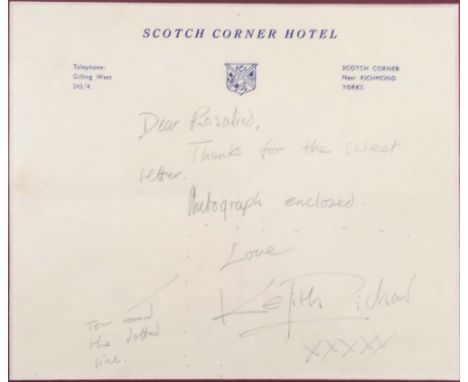 SCOTCH CORNER HOTEL
Telephone:
Gilling West
242/4.
SCOTCH CORNER
Near RICHMOND
YORKS
Dear Rosalind,
Thanks for the sweet
letter.
Autograph enclosed.
Love
Keith Richard
XXXXX
Tear round
the dotted
line.